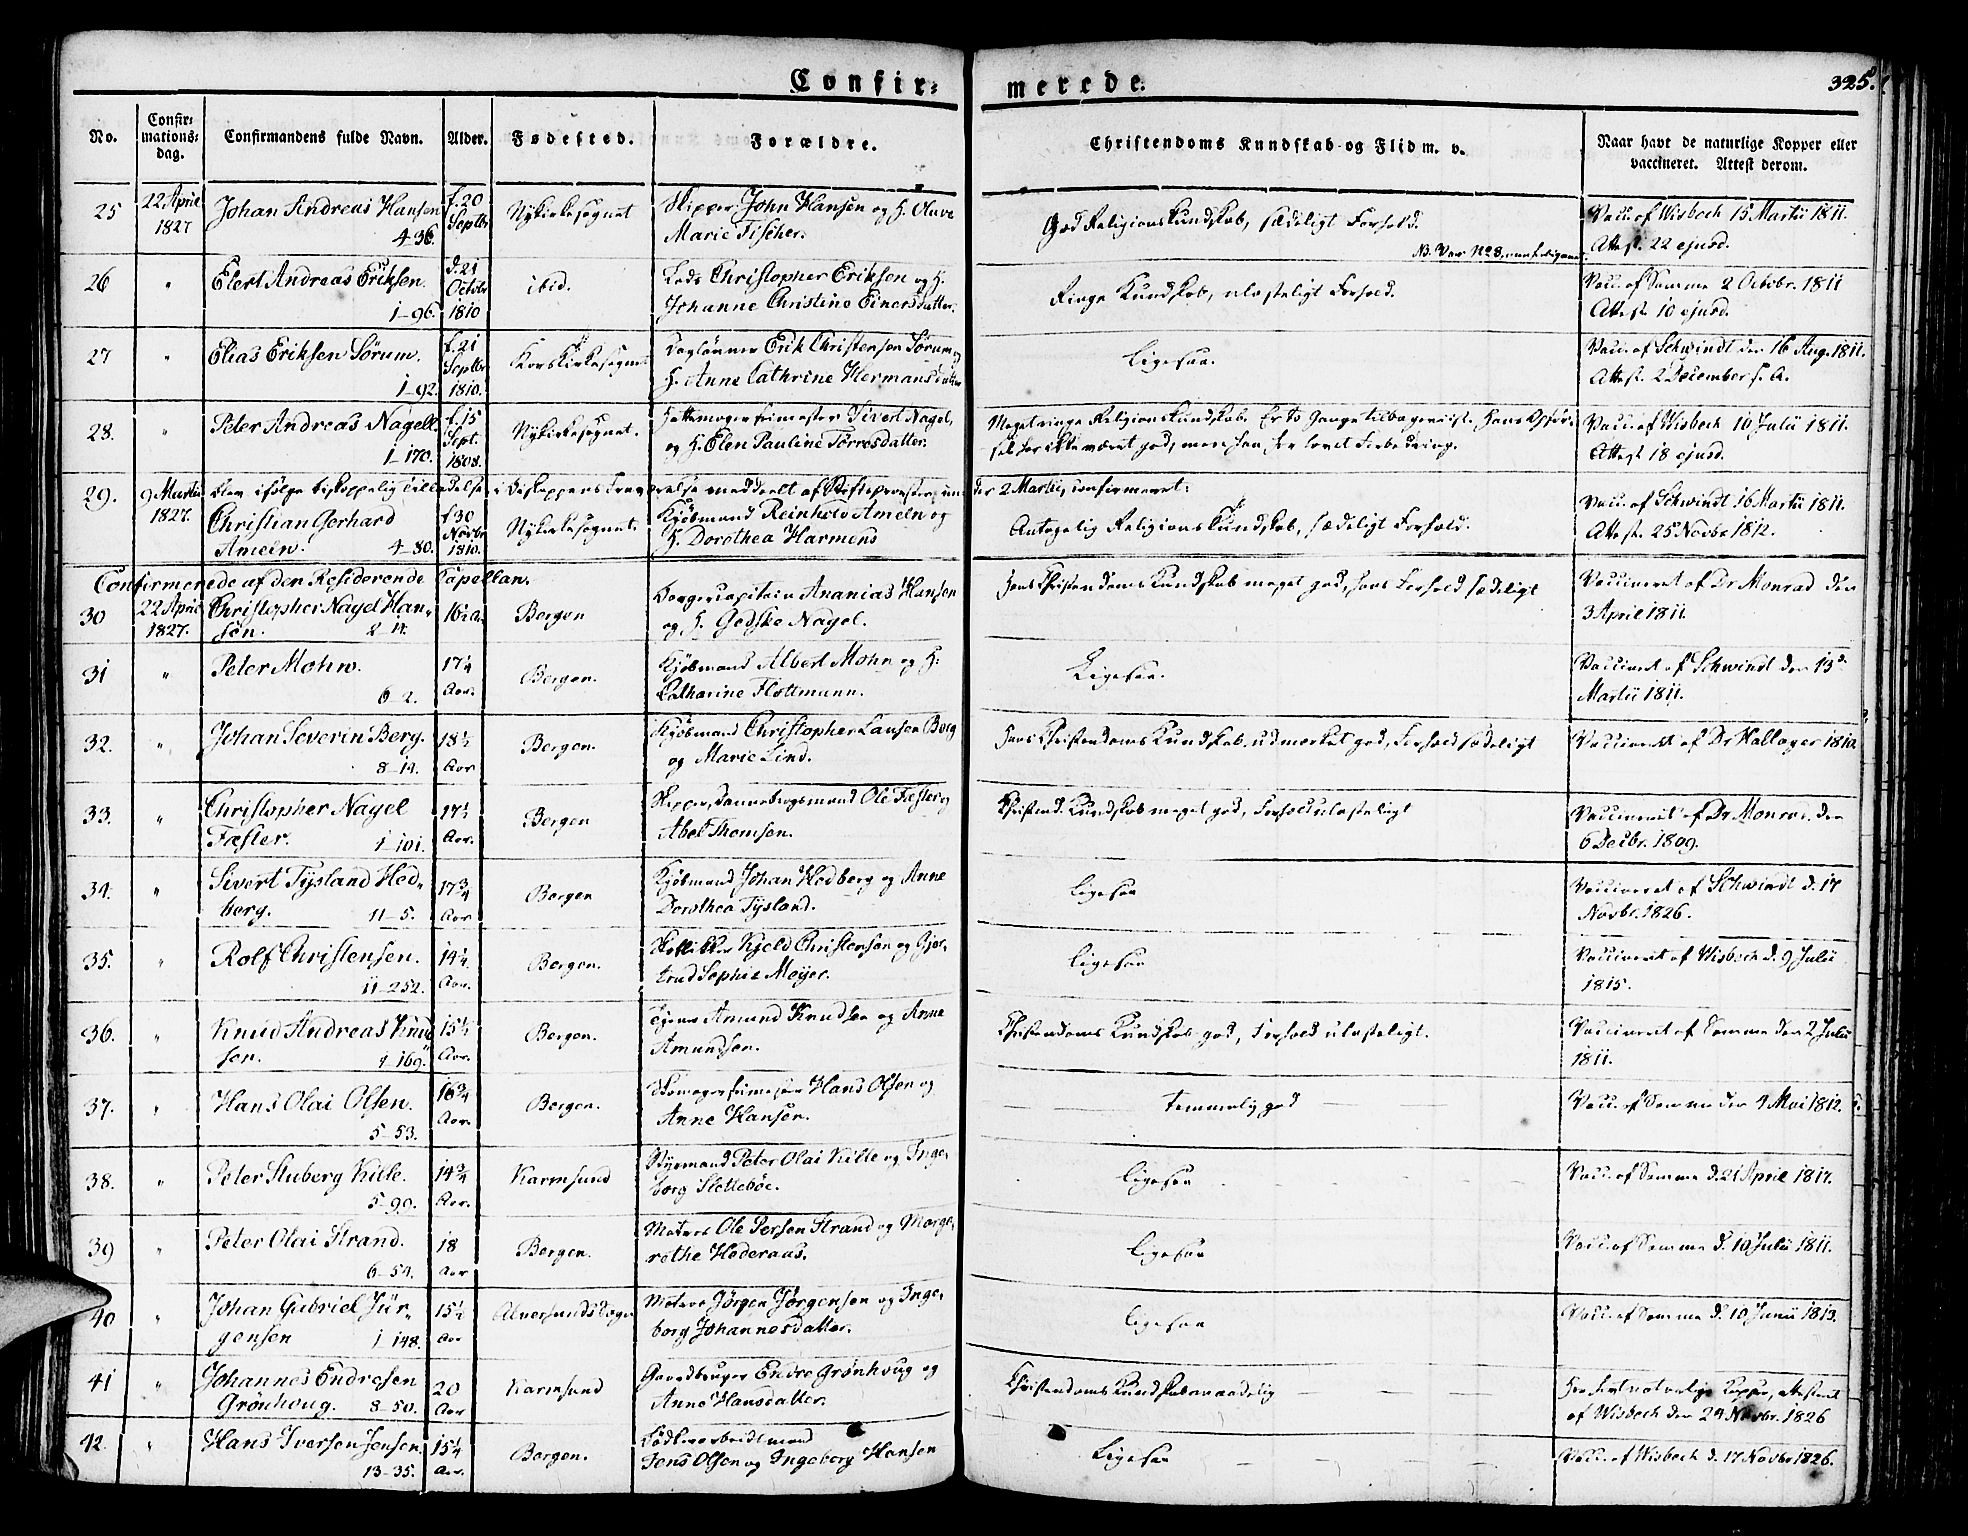 Confir= merede. 325.
No. Confir=mations=dag. Confirmandens fulde Navn. Alder. Fødested. Forældre. Christendoms Kundskab og Flid m. v. Naar havt de naturlige Kopper eller vaccineret. Attest derom.
25 22 April 1827 Johan Andreas Hansen 4-36. f. 20 Septbr Nykirkesognet Skipper John Hansen og H. Oluve Marie Fischer. God Religions Kundskab, sædeligt Forhold. Vacc. af Wisbech 15 Martii 1811. Attest 22 ejusd.
NB. Var No 8
26 " Elert Andreas Eriksen. 1-96. d. 21 Octobr 1810 ibid. Lods Christopher Eriksen og H. Johanne Christine Einersdatter. Ringe Kundskab, ulasteligt Forhold. Vacc. af Samme 2 Octobr. 1811 Attest 10 ejusd.
27 " Elias Eriksen Sørum. 1-92. f. 21 Septbr 1810. Korskirkesognet Daglønner Erik Christensen Sørum og H. Anne Cathrine Hermansdatter Ligesaa. Vacc. af Schwindt den 16 Aug. 1811. Attest 2 December s. A.
28. " Peter Andreas Nagell. 1-170. f. 15 Sept. 1808. Nykirkesognet. Hattemagersvinester Sivert Nagel, og H. Elen Pauline Torresdatter. Meget ringe Religions Kundskab. Er to Gange tilbageviist. Hans Opførsel har ikke været god, men han har lovet Forbedring. Vacc. af Wisbech 10 Julii 1811. Attest 18 ejusd.
29. 9 Martii 1827. blev ifølge biskoppelig Tilladelse i Biskoppens Fraværelse meddeelt af Stiftsprovsten under 2 Martii, confirmeret:
Christian Gerhard Ameln. 4-80. f. 30 Novbr 1810. Nykirkesognet. Kjøbmand Reinhold Ameln og H. Dorothea Harmens Antagelig Religions Kundskab, sædeligt Forhold. Vacc. af Schwindt 16 Martii 1811. Attest 25 Novbr 1812.
Confirmerede af den Residerende Capellan.
30 22 April 1827. Christopher Nagel Hansen. 2-14. 16½ A. Bergen Borgercapitain Ananias Hansen og H. Gedske Nagel. Hans Christendoms Kundskab meget god, hans Forhold sædeligt Vaccineret af Dr Monrad den 3 April 1811.
31 " Peter Mohn. 6-2. 17¼ Aar. Bergen. Kjøbmand Albert Mohn og H: Catharine Flottmann. Ligesaa. Vaccineret af Schwindt den 13de Martii 1811.
32. " Johan Severin Berg. 8-14. 18½ Aar Bergen. Kjøbmand Christopher Lausen Berg og Marie Lind. Hans Christendoms Kundskab udmerket god, Forhold sædeligt Vaccineret af Dr Hallager 1810.
33. " Christopher Nagel Fæster. 1-101. 17½ Aar. Bergen Skipper, Dannebrogsmand Ole Fæster og Abel Thomsen. Christend. Kundskab meget god, Forhold ulasteligt Vaccineret af Dr Monrad den 6 Decbr. 1809.
34. " Sivert Tysland Hedberg. 11-5. 17¾ Aar Bergen Kjøbmand Johan Hedberg og Anne Dorothea Tysland. Ligesaa Vaccineret af Schwindt d. 17 Novbr. 1826.
35. " Rolf Christensen. 11-252. 14¼ Aar. Bergen. Kjeld Christensen og Gjertrud Sophie Meyer. Ligesaa Vaccineret af Wisbech d. 9 Julii 1815.
36. " Knud Andreas Knudsen. 4-169. 15½ Aar. Bergen. Tjener Amund Knudsen og Anne Amundsen. Christendoms Kundskab god, Forhold ulasteligt. Vaccineret af Samme den 2 Julii 1811.
37. " Hans Olai Olsen. 5-53. 16¾ Aar. Bergen. Skomagersvinester Hans Olsen og Anne Hansen. — — temmelig god — — Vacc. af Samme den 4 Mai 1812.
38. " Peter Stuberg Kitle. 5-90. 14¾ Aar. Karmsund Styrmand Peter Olai Kitle og Ingeborg Slettebøe. Ligesaa Vacc. af Samme d. 21 April 1817.
39 " Peter Olai Strand. 6-54. 18 Aar Bergen. Matros Ole Persen Strand og Margrethe Hederaas. Ligesaa Vacc. af Samme d. 10 Julii 1811.
40 " Johan Gabriel Jürgensen 1-148. 15½ Aar Alversunds Sogn Matros Jørgen Jørgensen og Ingeborg Johannesdatter. Ligesaa Vacc. af Samme d. 10 Junii 1813.
41 " Johannes Endresen Grønhoug. 8-50. 20 Aar Karmsund Gaardbruger Endre Grønhoug og Anne Hansdatter. Christendoms Kundskab maadelig Har havt naturlige Kopper, attesteret af Wisbech den 24 Novbr. 1826
42. " Hans Iversen Jensen. 13-35. 15¼ Aar. Bergen. Jens Olsen og Ingeborg Hansen Ligesaa Vacc. af Wisbech d. 17 Novbr 1826.